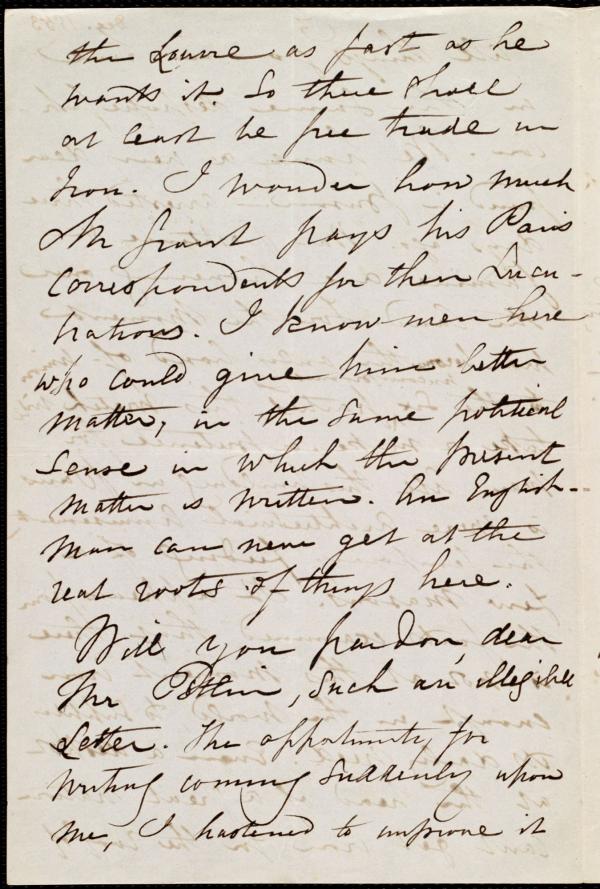 the Louvre as fast as he
wants it. So there shall
at least be free trade in
Iron. I wonder how much
Mr Grant pays his Paris
Correspondents for their Lucu-
brations. I know men here
who could give him better
matter, in the same political
sense in which the present
matter is written. An English-
man can never get at the
real roots of things here.
Will you pardon, dear
Mr , such an illegible
Letter. The opportunity for
writing coming suddenly upon
me, I hastened to improve it